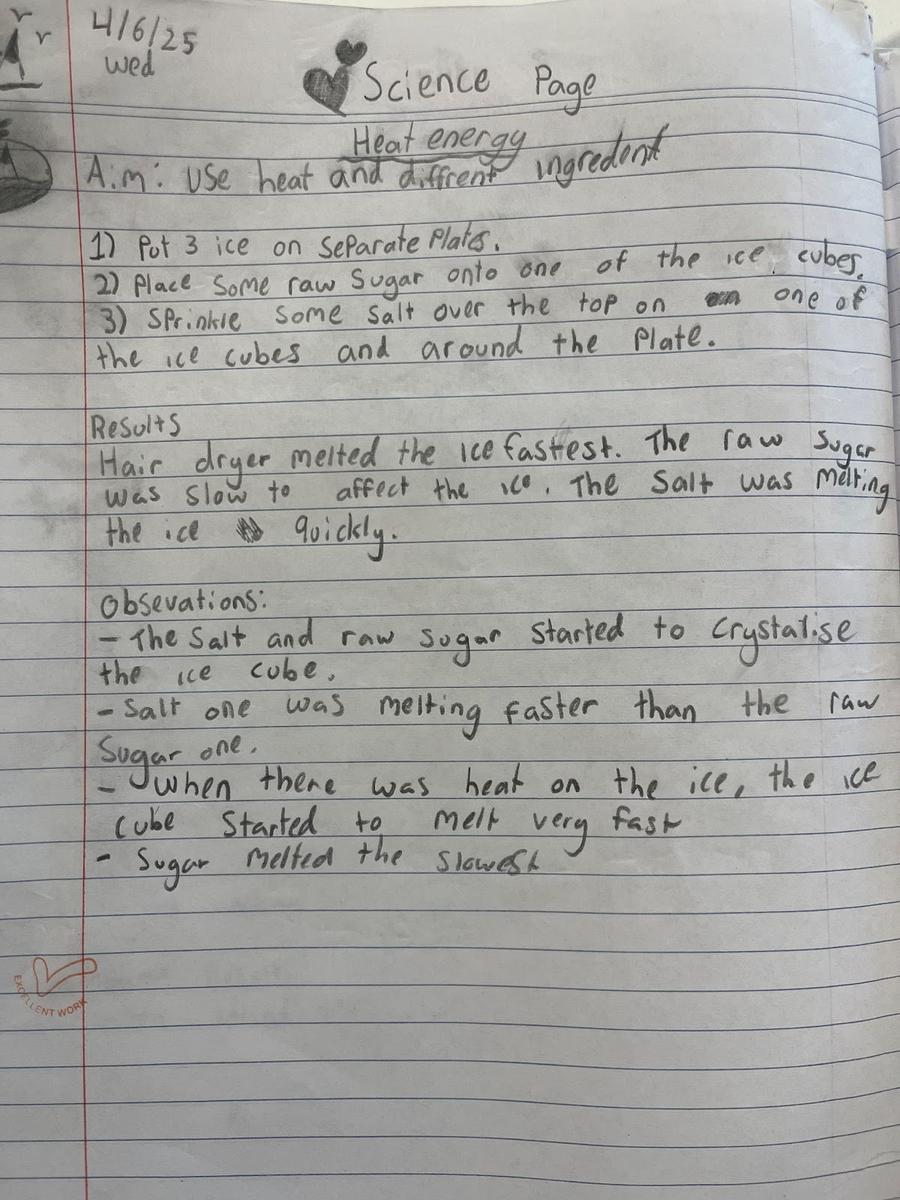 4/6/25
Wed
Science Page
Heat energy
Aim: Use heat and diffrent ingredent
1) Put 3 ice on separate plates.
2) Place some raw sugar onto one of the ice cubes.
3) Sprinkle some salt over the top on one of
the ice cubes and around the plate.
Results
Hair dryer melted the ice fastest. The raw sugar
was slow to affect the ice. The salt was melting
the ice quickly.
Obsevations:
- The salt and raw sugar started to crystalise
the ice cube.
- Salt one was melting faster than the raw
sugar one.
- When there was heat on the ice, the ice
cube started to melt very fast
- Sugar melted the slowest
EXCELLENT WORK